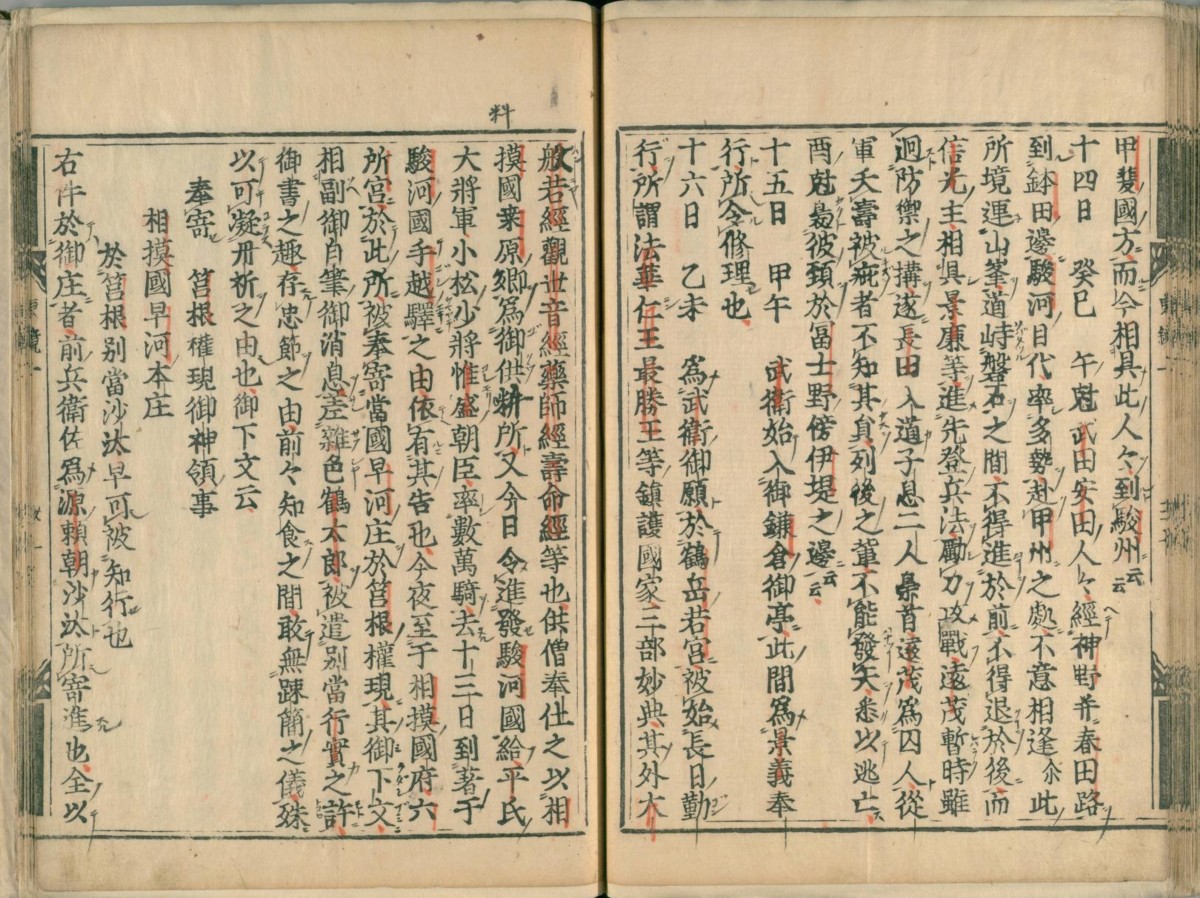 甲斐國方、而今相具此人々、到駿州云云
十四日 癸巳 午尅武田安田人々、經神野并春田路
到鉢田邊、駿河目代率多勢、赴甲州之處、不意相逢尓此
所、境連山峯、道峙磐石之間、不得進於前、不得退於後、而
信光主、相具景廉等、進先登、兵法勵力攻戰、遠茂暫時雖
廻防禦之搆、遂長田入道子息二人梟首、遠茂爲囚人、從
軍夭壽被疵者、不知其員、列後之輩、不能發矢、悉以逃亡、
酉尅梟彼頚於冨士野傍伊堤之邊云云
十五日 甲午 武衛始入御鎌倉御亭、此間爲景義奉
行、所令修理也
十六日 乙未 爲武衛御願、於鶴岳若宮被始長日勤
行、所謂法華仁王最勝王等、鎮護國家三部妙典、其外大
般若經觀世音經藥師經壽命經等也、供僧奉仕之、以相
料
摸國桒原郷爲御供耕所、又今日令進發駿河國給、平氏
大將軍小松少將惟盛朝臣、率數萬騎、去十三日到著于
駿河國手越驛之由、依有其告也、今夜至于相摸國府六
所宮、於此所、被奉寄當國早河庄於筥根權現、其御下文、
相副御自筆御消息、差雜色鶴太郎、被遣別當行實之許、
御書之趣、存忠節之由、前々知食之間、敢無踈簡之儀、殊
以可凝丹祈之由也、御下文云
奉寄 筥根權現御神領事
相摸國早河本庄
於筥根別當沙汰早可被知行也
右件於御庄者、前兵衛佐爲源頼朝沙汰所寄進也、全以